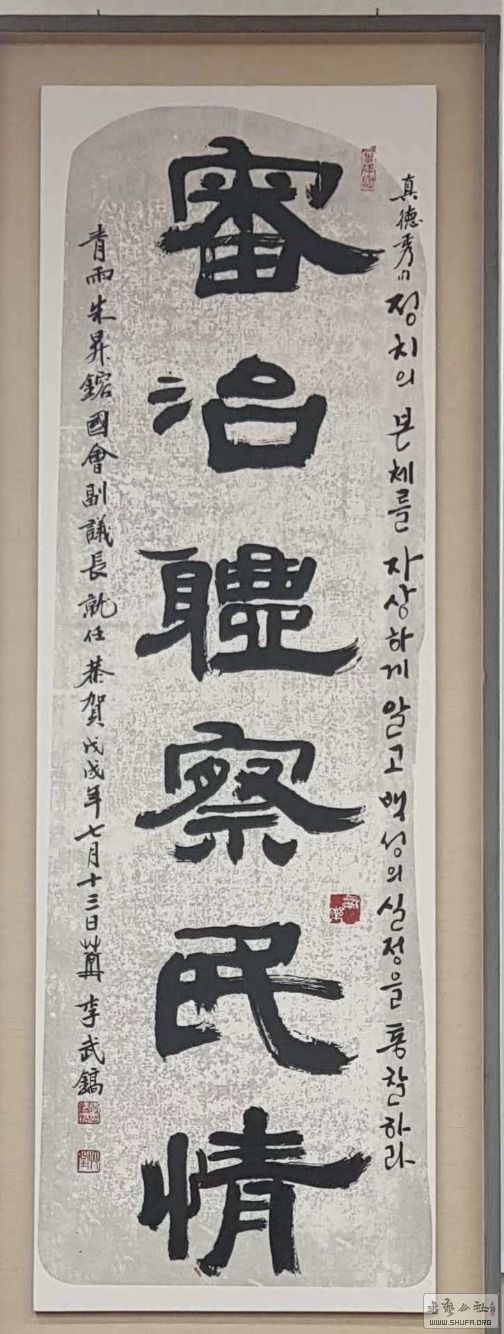 真德秀 정치의 본체를 자상하게 알고 백성의 실정을 통찰하라
審治軆察民情
青雨朱昇鎔國會副議長就任恭賀戊戌年七月十三日 李武鎬
书艺公社
WWW.SHUFA.ORG